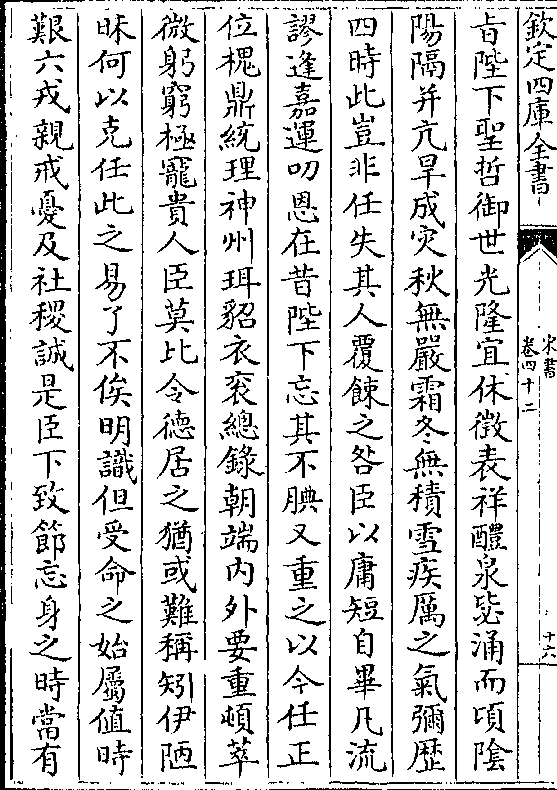 欽定四庫全書
宋書
卷四十二
十六
旨陛下聖哲御世光隆宜休徵表祥醴泉毖涌而頃陰
陽隔并亢旱成灾秋無嚴霜冬無積雪疾厲之氣彌歴
四時此豈非任失其人覆餗之咎臣以庸短自畢凡流
謬逢嘉運叨恩在昔陛下忘其不腆又重之以今任正
位槐鼎統理神州珥貂衣衮總錄朝端内外要重頓萃
微躬窮極寵貴人臣莫比令德居之猶或難稱矧伊陋
昧何以克任此之易了不俟明識但受命之始屬值時
艱六戎親戒憂及社稷誠是臣下致節忘身之時當有